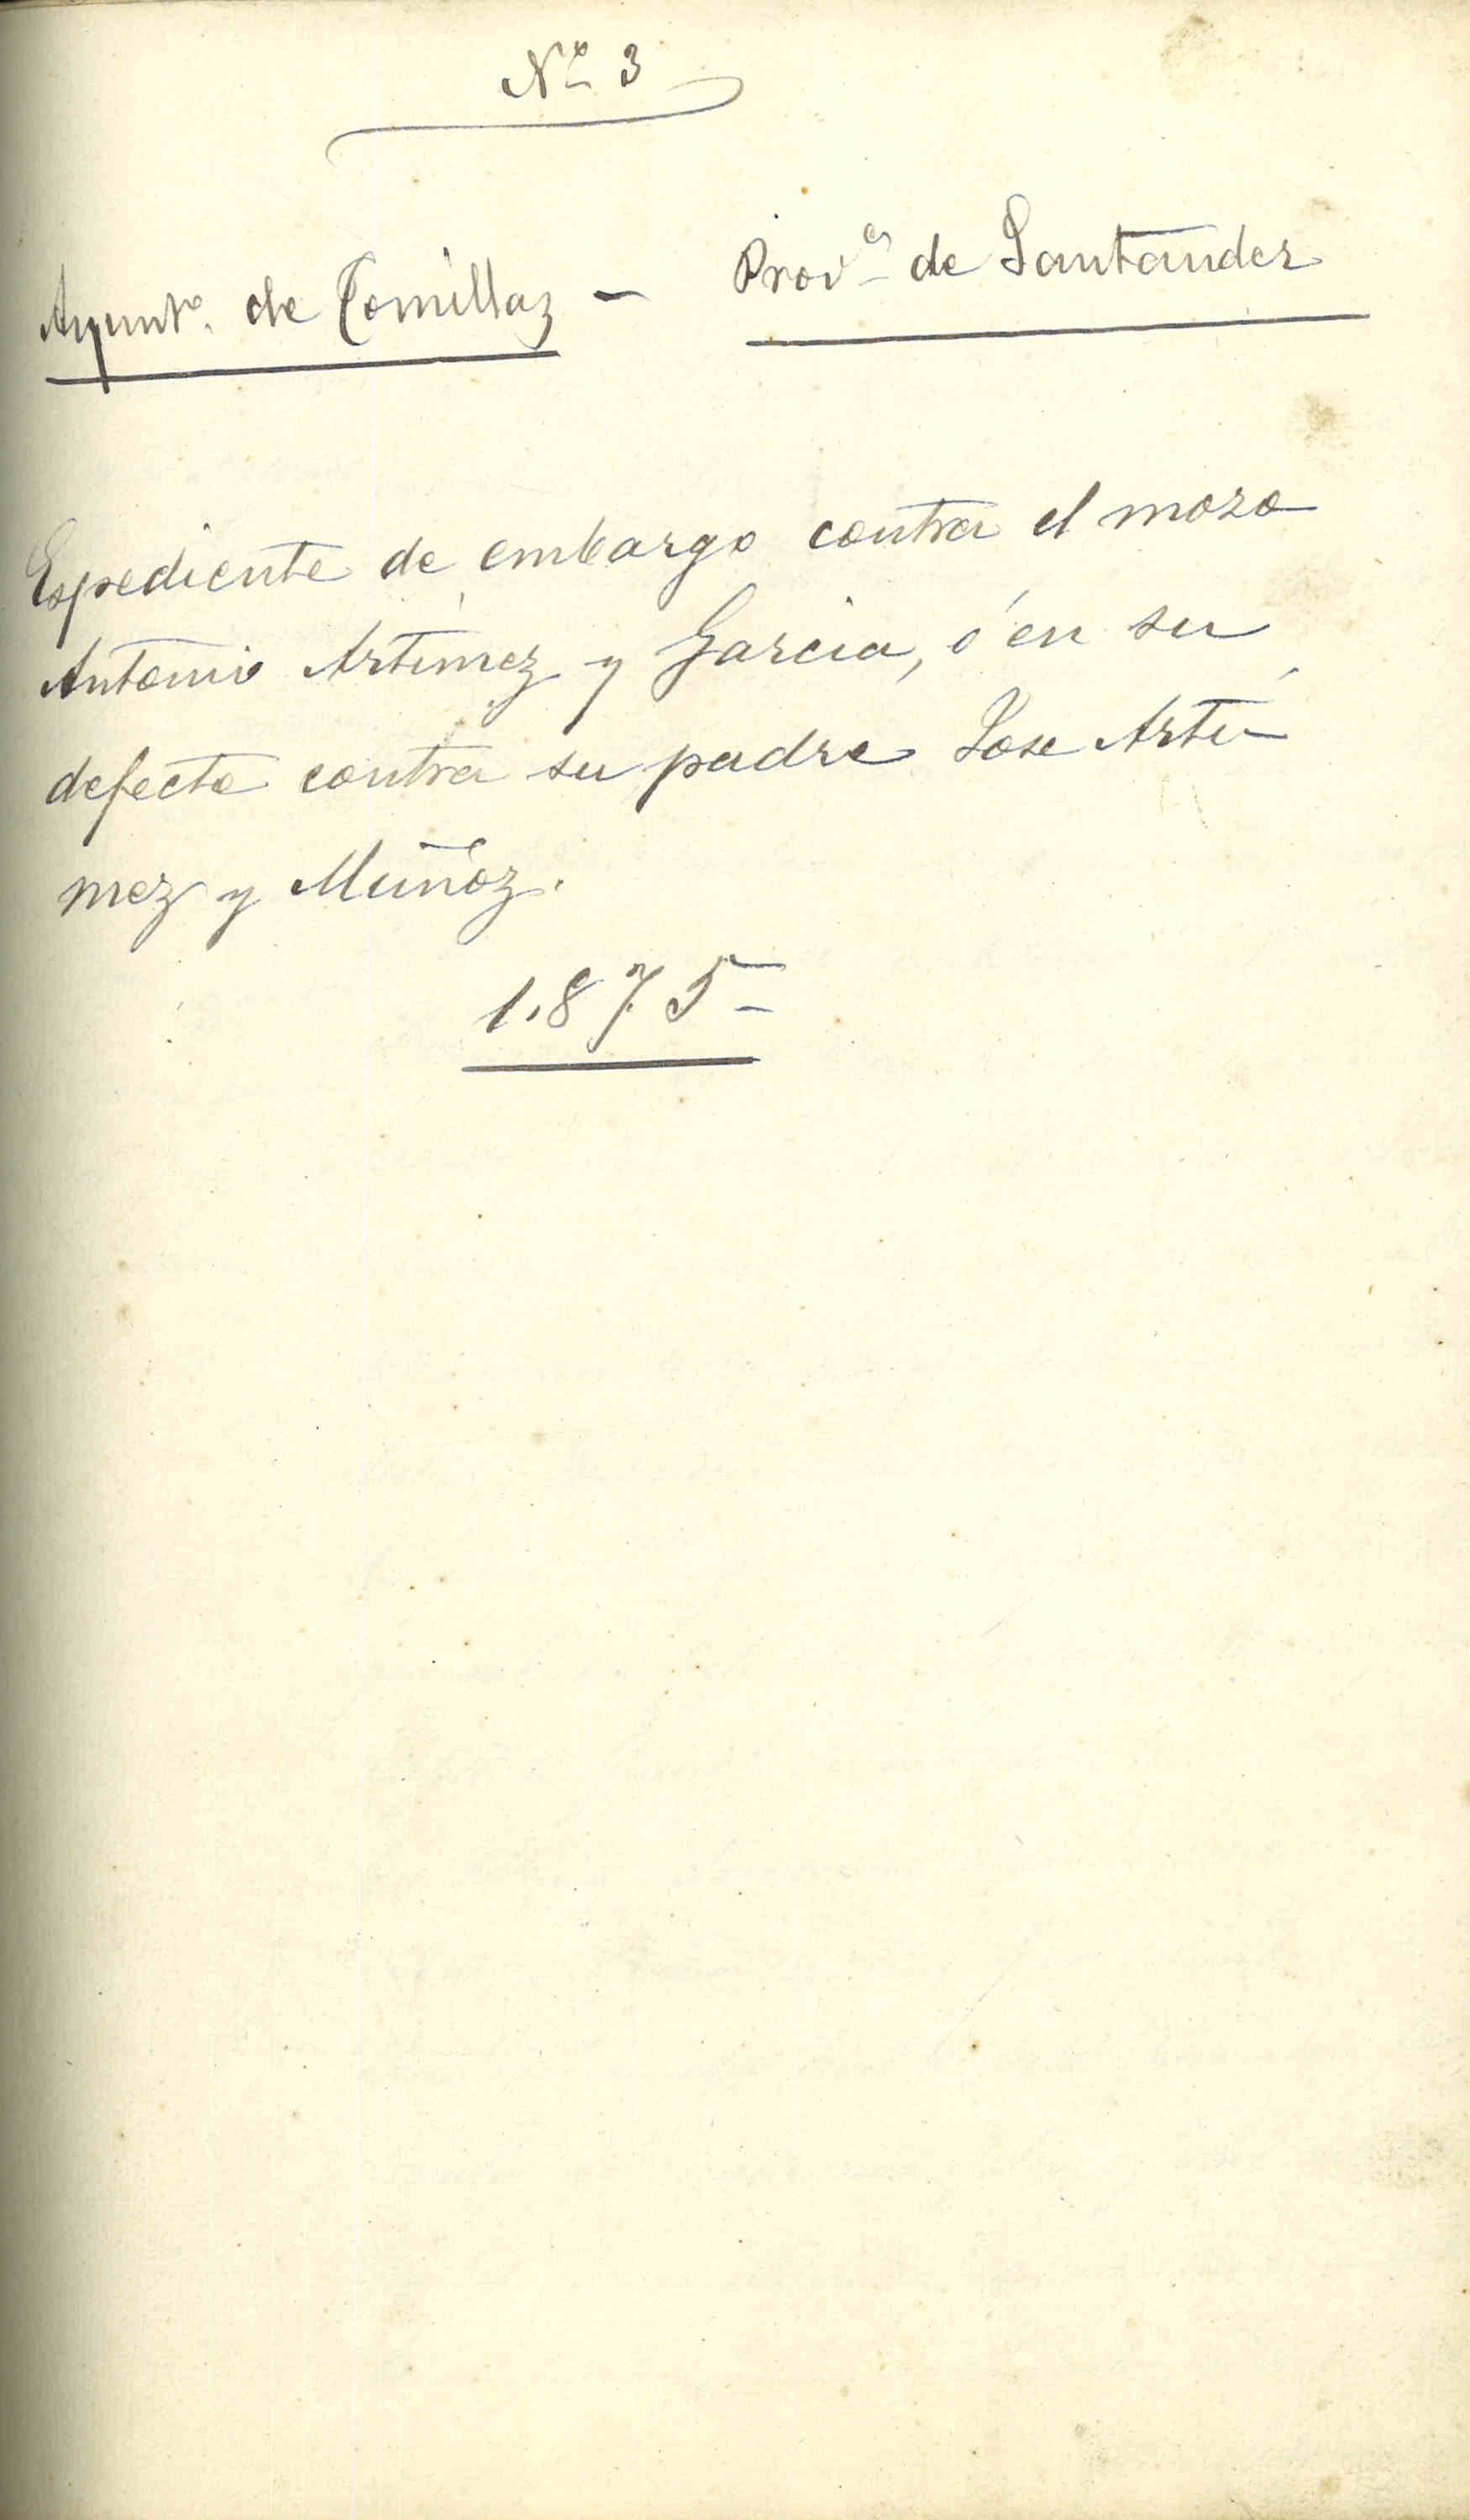 Nº 3
Ayuntº. de Comillas – Provª de Santander
Espediente de embargo contra el mozo
Antonio Artimez y Garcia, ó en su
defecto contra su padre José Arti-
mez y Muñoz.
1.875